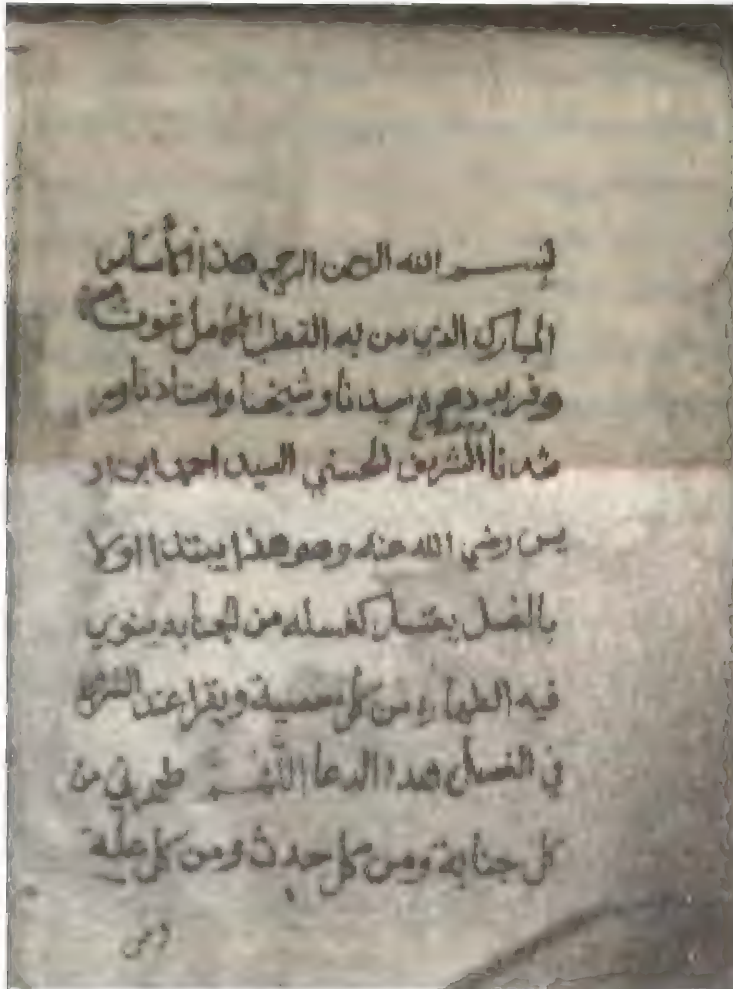 بسم الله الرحمن الرحيم هذا الأساس
المبارك الذي من به القطب الكامل غوث
وفريد دهره سيدنا وشيخنا واستادنا ومر
شدنا الشريف الحسني السيد احمد ابن ادر
يس رضي الله عنه وهو هذا يبتدا اولا
بالغسل يغتسل كغسله من الجنابه ينوي
فيه الطهارة من كل معصية ويقرا عند الشروع
في الغسل هذا الدعا اللهم طهرني من
كل جنابة ومن كل حدث ومن كل علة
ومن